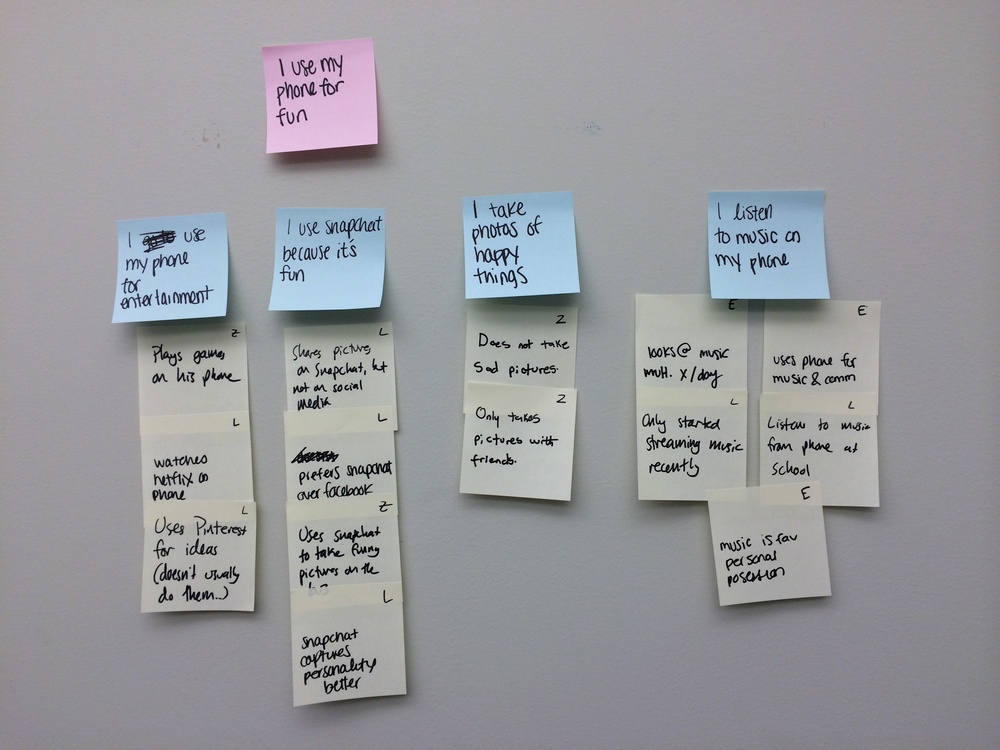 I use my
phone for
fun
I use
my phone
for
entertainment
Z
Plays games
on his phone
L
watches
netflix on
phone
L
Uses Pinterest
for ideas
(doesn't usually
do them..)
I use snapchat
because it's
fun
L
Shares pictures
on Snapchat, but
not on social
media
L
prefers snapchat
over facebook
Z
Uses snapchat
to take funny
pictures on the
bus
L
snapchat
captures
personality
better
I take
photos of
happy
things
Z
Does not take
Sad pictures.
Z
Only takes
pictures with
friends.
I listen
to music on
my phone
E
looks@ music
mult. x/day
L
Only started
streaming music
recently
E
uses phone for
music & comm
L
Listen to music
from phone at
school
E
music is fav
personal
posession